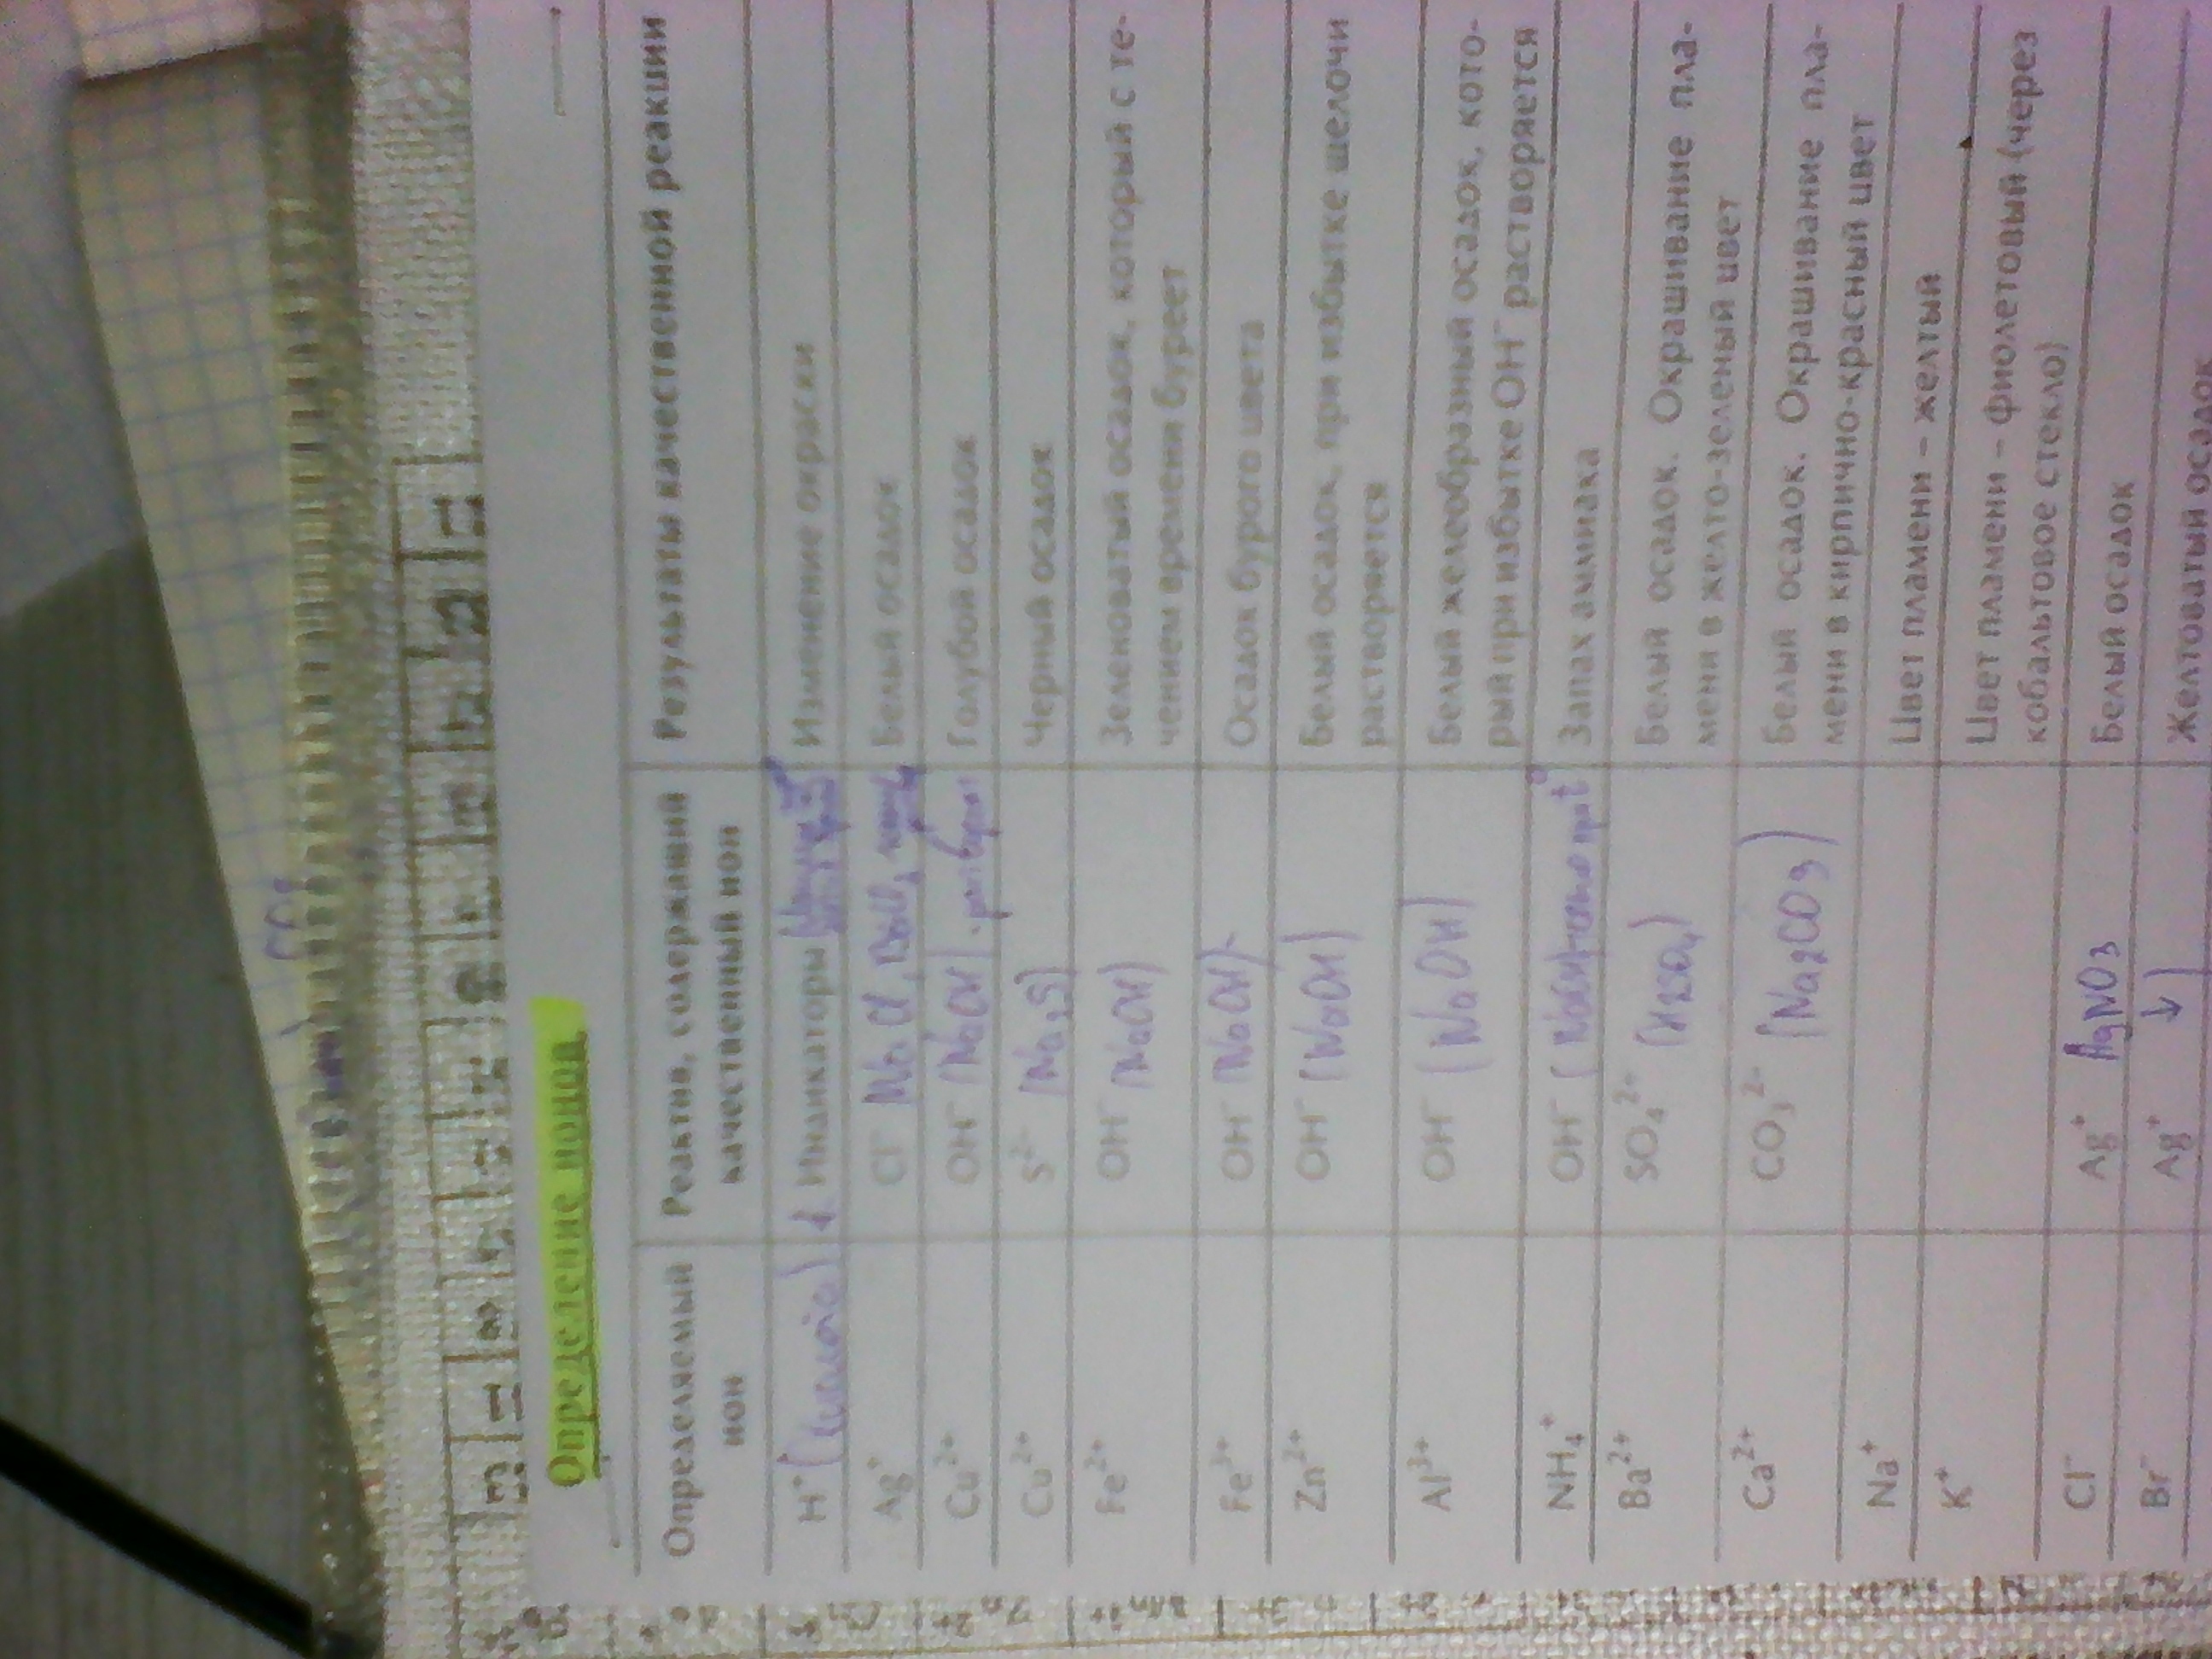 Определение ионов
Определяемый ион Реактив, содержащий качественный ион Результаты качественной реакции
H⁺ (кислота) Индикаторы Изменение окраски
Ag⁺ Cl⁻ NaCl Белый осадок
Cu²⁺ OH⁻ (NaOH) Голубой осадок
Cu²⁺ S²⁻ (Na₂S) Черный осадок
Fe²⁺ OH⁻ (NaOH) Зеленоватый осадок, который с те-
чением времени буреет
Fe³⁺ OH⁻ (NaOH) Осадок бурого цвета
Zn²⁺ OH⁻ (NaOH) Белый осадок, при избытке щелочи
растворяется
Al³⁺ OH⁻ (NaOH) Белый желеобразный осадок, кото-
рый при избытке OH⁻ растворяется
NH₄⁺ OH⁻ (NaOH) при t° Запах аммиака
Ba²⁺ SO₄²⁺ (H₂SO₄) Белый осадок. Окрашивание пла-
мени в желто-зеленый цвет
Ca²⁺ CO₃²⁻ (Na₂CO₃) Белый осадок. Окрашивание пла-
мени в кирпично-красный цвет
Na⁺ Цвет пламени – желтый
K⁺ Цвет пламени – фиолетовый (через
кобальтовое стекло)
Cl⁻ Ag⁺ AgNO₃ Белый осадок
Br⁻ Ag⁺ ↓ Желтоватый осадок